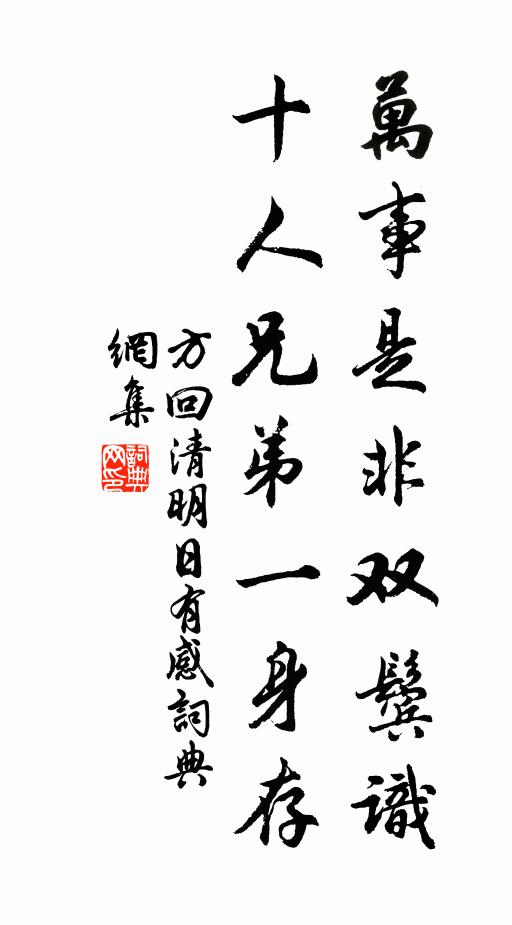 萬事是非双鬓識
十人兄弟一身存
方回清明日有感詞典
網集
詞典
网印